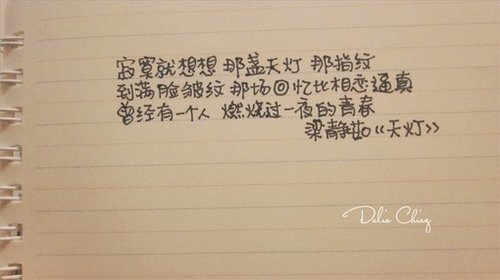 寂寞就想想 那盏天灯 那指纹
到满脸皱纹 那场回忆比相恋逼真
曾经有一个人 燃烧过一夜的青春
梁静茹《天灯》
Dalia Chiag